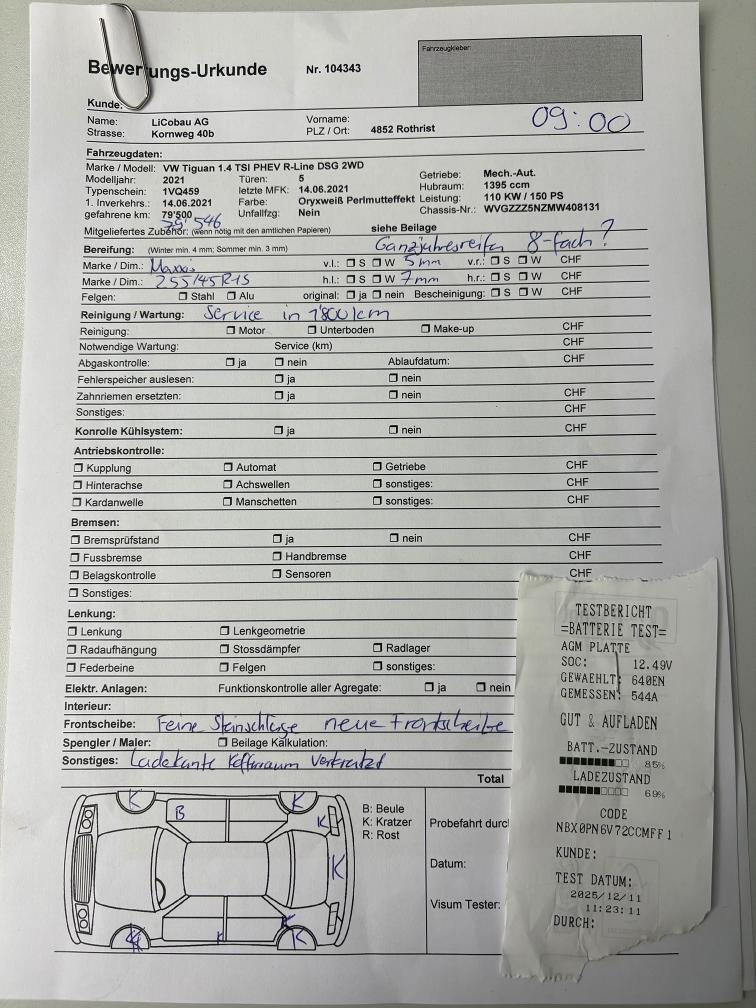 Fahrzeugkleber:
Bewertungs-Urkunde Nr. 104343
Kunde:
09:00
Name: LiCobau AG Vorname:
Strasse: Kornweg 40b PLZ / Ort: 4852 Rothrist
Fahrzeugdaten:
Marke / Modell: VW Tiguan 1.4 TSI PHEV R-Line DSG 2WD Getriebe: Mech.-Aut.
Modelljahr: 2021 Türen: 5 Hubraum: 1395 ccm
Typenschein: 1VQ459 letzte MFK: 14.06.2021 Leistung: 110 KW / 150 PS
1. Inverkehrs.: 14.06.2021 Farbe: Oryxweiß Perlmutteffekt Chassis-Nr.: WVGZZZ5NZMW408131
gefahrene km: 79'500 Unfallfzg: Nein
79'546
Mitgeliefertes Zubehör: (wenn nötig mit den amtlichen Papieren) siehe Beilage
Ganzjahresreifen 8-fach?
Bereifung: (Winter min. 4 mm; Sommer min. 3 mm)
Marke / Dim.: Maxxis v.l.: S W 5mm v.r.: S W CHF
Marke / Dim.: 255/45R19 h.l.: S W 7mm h.r.: S W CHF
Felgen: Stahl Alu original: ja nein Bescheinigung: S W CHF
Reinigung / Wartung: Service in 7'800km
Reinigung: Motor Unterboden Make-up CHF
Notwendige Wartung: Service (km) CHF
Abgaskontrolle: ja nein Ablaufdatum: CHF
Fehlerspeicher auslesen: ja nein
Zahnriemen ersetzten: ja nein CHF
Sonstiges: CHF
Konrolle Kühlsystem: ja nein CHF
Antriebskontrolle:
Kupplung Automat Getriebe CHF
Hinterachse Achswellen sonstiges: CHF
Kardanwelle Manschetten sonstiges: CHF
Bremsen:
Bremsprüfstand ja nein CHF
Fussbremse Handbremse CHF
Belagskontrolle Sensoren CHF
Sonstiges:
Lenkung:
Lenkung Lenkgeometrie
Radaufhängung Stossdämpfer Radlager
Federbeine Felgen sonstiges:
Elektr. Anlagen: Funktionskontrolle aller Agregate: ja nein
Interieur:
Frontscheibe: Feine Steinschläge neue Frontscheibe
Spengler / Maler: Beilage Kalkulation:
Sonstiges: Ladekante Kofferraum Verkratzt
Total
K K
B K
K
K K K
B: Beule
K: Kratzer
R: Rost
Probefahrt durc
Datum:
Visum Tester:
TESTBERICHT
=BATTERIE TEST=
AGM PLATTE
SOC: 12.49V
GEWAEHLT: 640EN
GEMESSEN: 544A
GUT & AUFLADEN
BATT.-ZUSTAND
85%
LADEZUSTAND
69%
CODE
NBX0PN6V72CCMFF1
KUNDE:
TEST DATUM:
2025/12/11
11:23:11
DURCH: